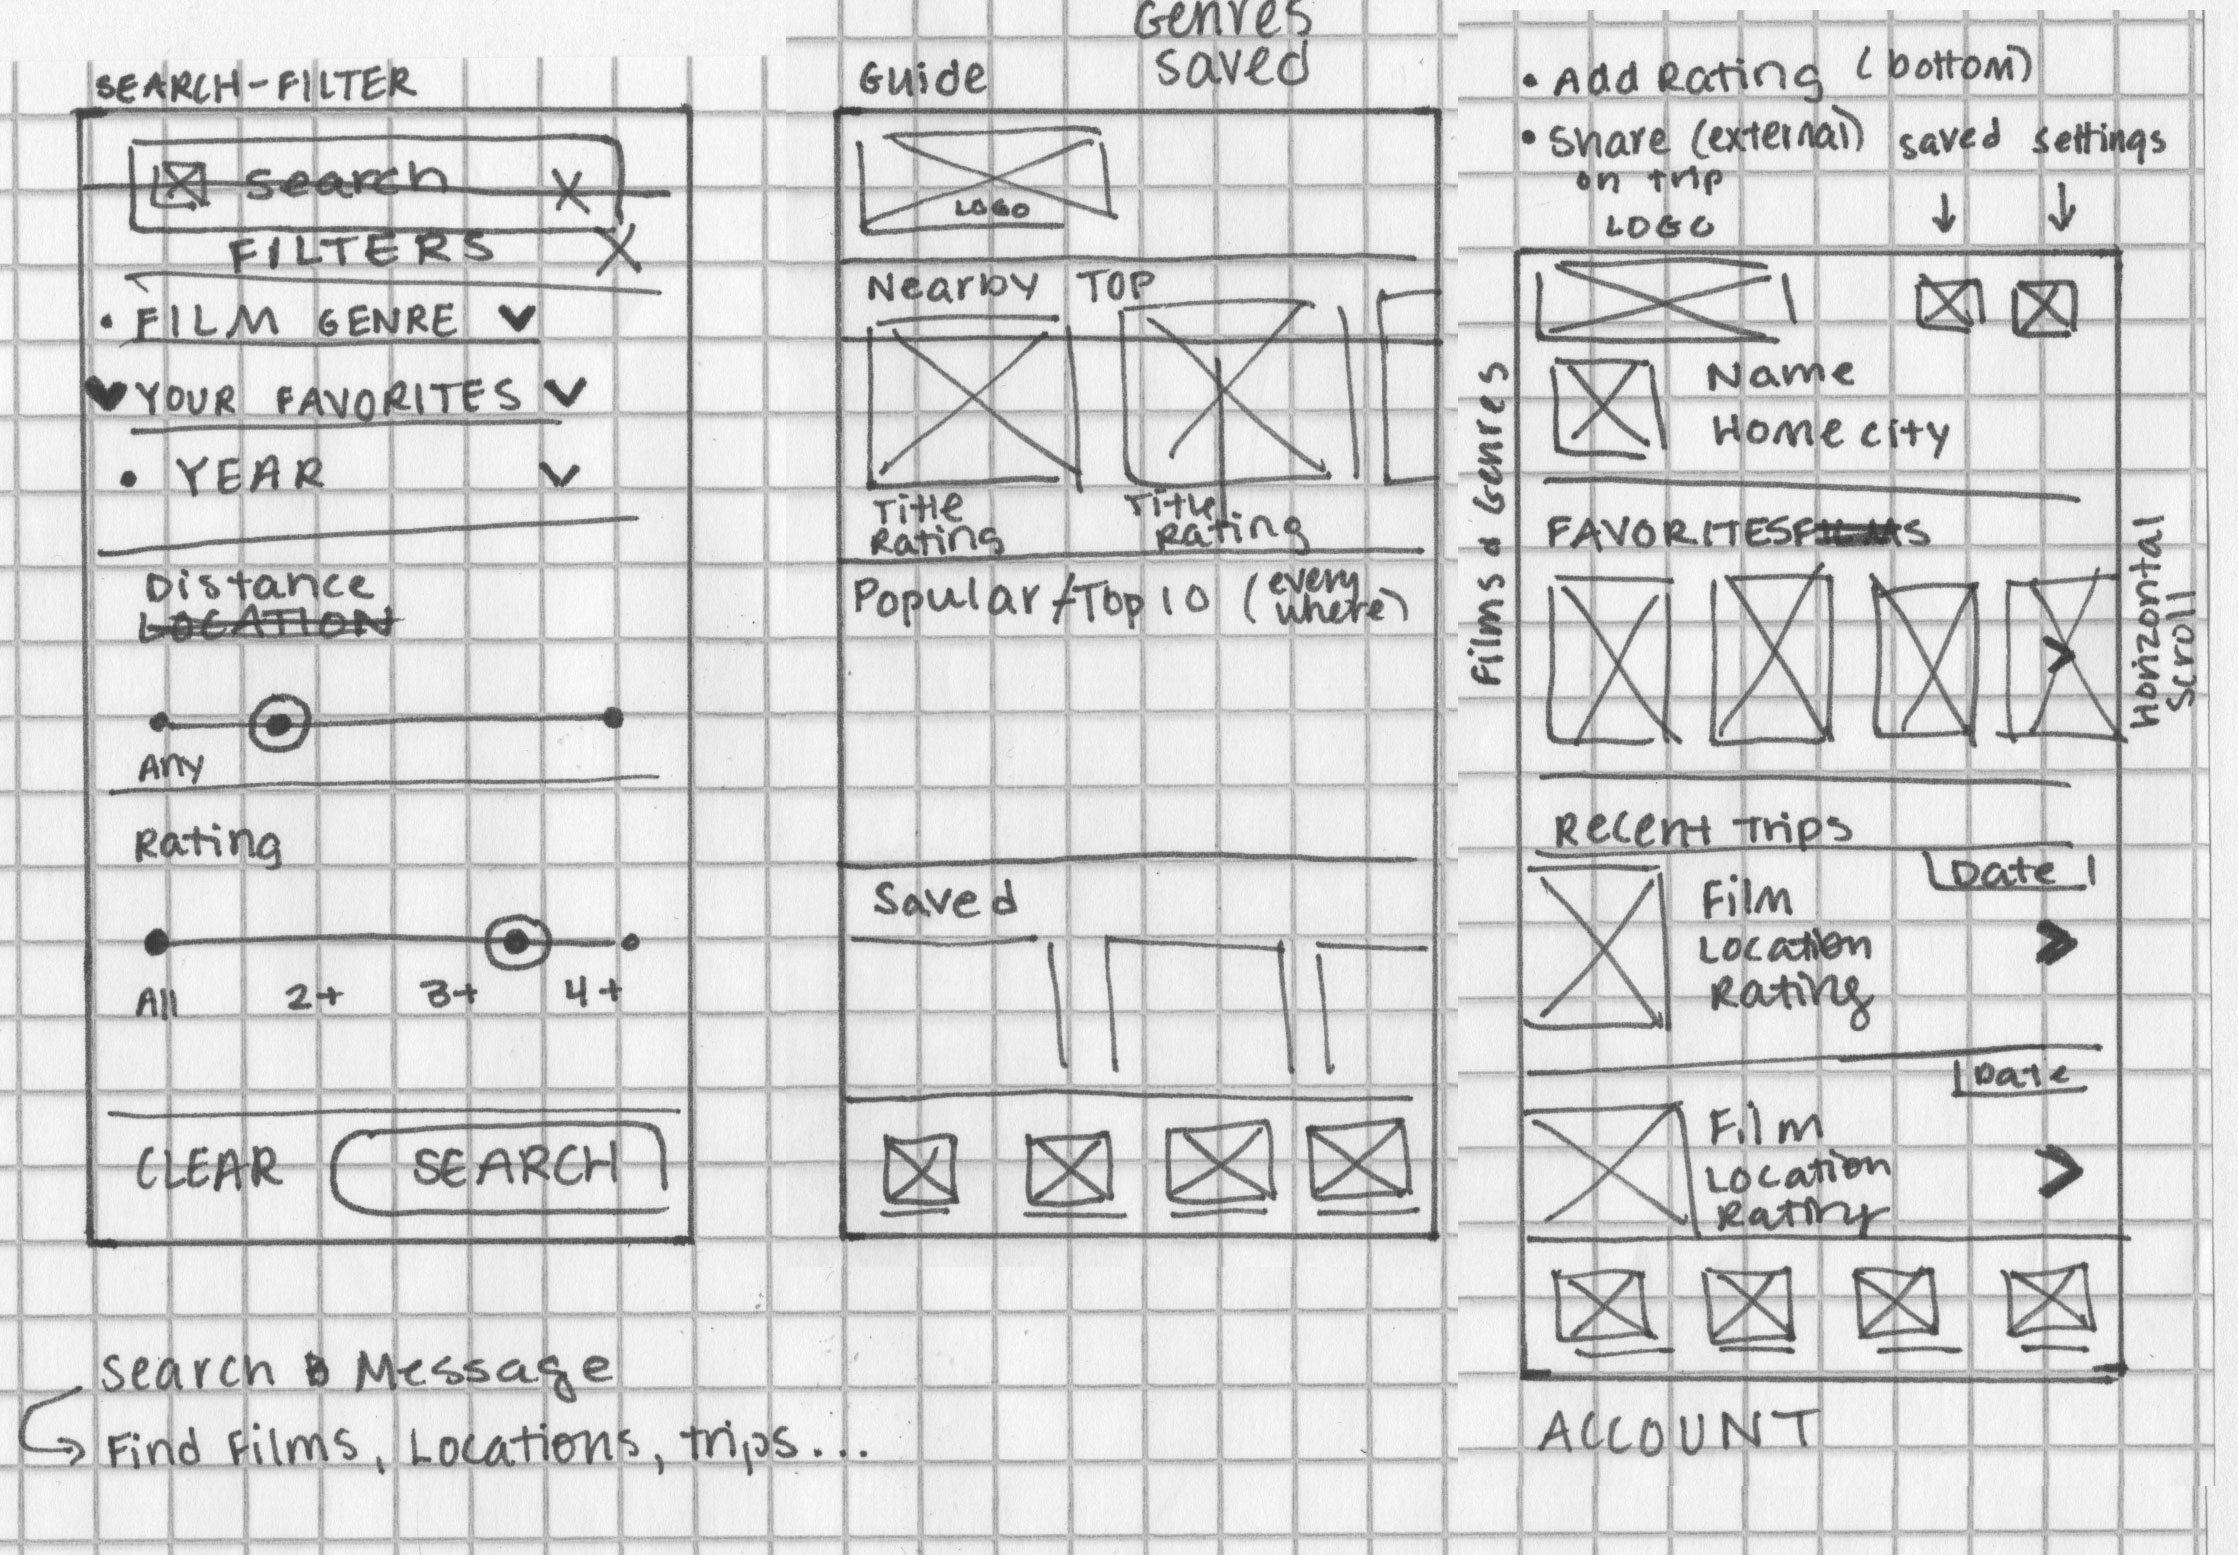 SEARCH-FILTER
search X
FILTERS X
• FILM GENRE
YOUR FAVORITES
• YEAR
Distance
LOCATION
Any
Rating
All 2+ 3+ 4+
CLEAR SEARCH
Search Message
Find Films, Locations, trips...
Genres
saved
Guide
LOGO
Nearby TOP
Title
Rating
Title
Rating
Popular/Top 10 (every
where)
Saved
• Add Rating (bottom)
• Share (external)
on trip
saved settings
LOGO
Name
Home city
Films & Genres
FAVORITES FILMS
Horizontal
Scroll
Recent Trips
Date
Film
Location
Rating
Date
Film
Location
Rating
ACCOUNT